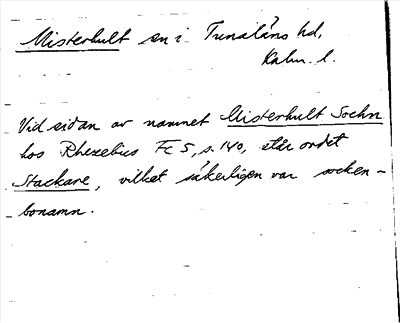 Misterhult sn i Tunaläns hd,
Kalm. l.
Vid sidan av namnet Misterhult Sochn
hos Rhezelius Fc 5, s. 140, står ordet
Stackare, vilket säkerligen var socken-
bonamn.